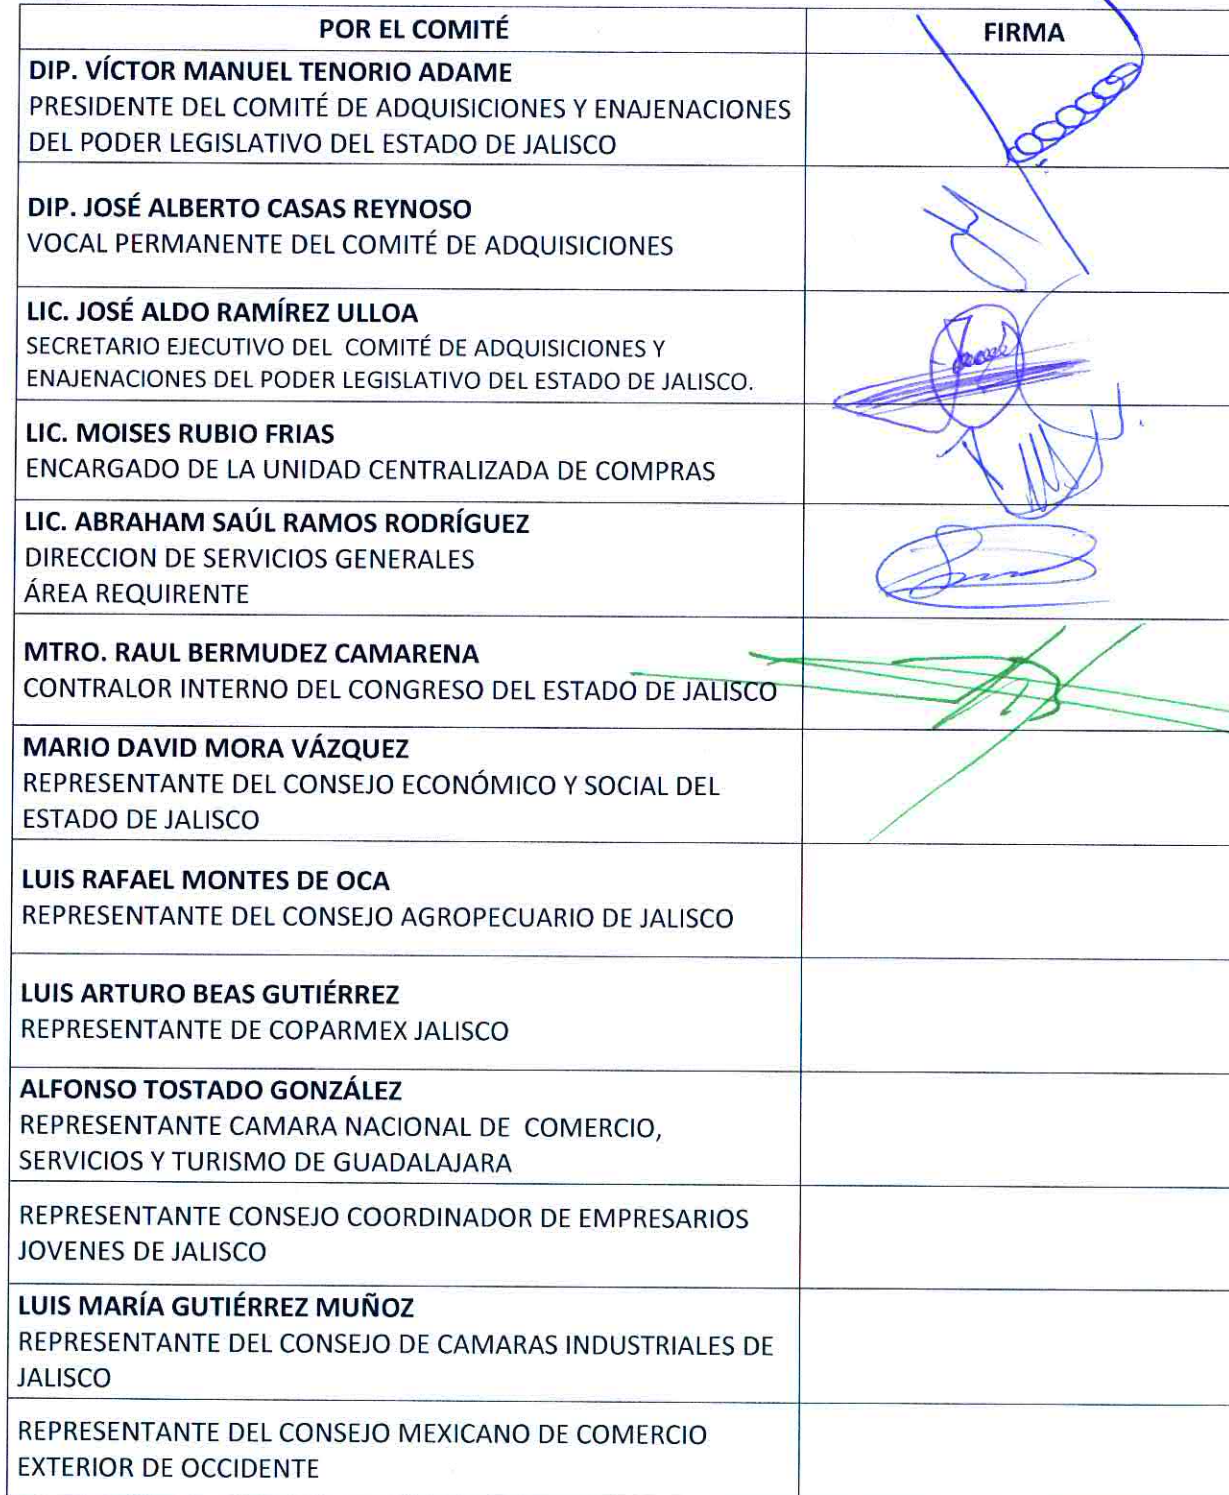 POR EL COMITÉ
FIRMA
DIP. VÍCTOR MANUEL TENORIO ADAME
PRESIDENTE DEL COMITÉ DE ADQUISICIONES Y ENAJENACIONES
DEL PODER LEGISLATIVO DEL ESTADO DE JALISCO
DIP. JOSÉ ALBERTO CASAS REYNOSO
VOCAL PERMANENTE DEL COMITÉ DE ADQUISICIONES
LIC. JOSÉ ALDO RAMÍREZ ULLOA
SECRETARIO EJECUTIVO DEL COMITÉ DE ADQUISICIONES Y
ENAJENACIONES DEL PODER LEGISLATIVO DEL ESTADO DE JALISCO.
LIC. MOISES RUBIO FRIAS
ENCARGADO DE LA UNIDAD CENTRALIZADA DE COMPRAS
LIC. ABRAHAM SAÚL RAMOS RODRÍGUEZ
DIRECCION DE SERVICIOS GENERALES
ÁREA REQUIRENTE
MTRO. RAUL BERMUDEZ CAMARENA
CONTRALOR INTERNO DEL CONGRESO DEL ESTADO DE JALISCO
MARIO DAVID MORA VÁZQUEZ
REPRESENTANTE DEL CONSEJO ECONÓMICO Y SOCIAL DEL
ESTADO DE JALISCO
LUIS RAFAEL MONTES DE OCA
REPRESENTANTE DEL CONSEJO AGROPECUARIO DE JALISCO
LUIS ARTURO BEAS GUTIÉRREZ
REPRESENTANTE DE COPARMEX JALISCO
ALFONSO TOSTADO GONZÁLEZ
REPRESENTANTE CAMARA NACIONAL DE COMERCIO,
SERVICIOS Y TURISMO DE GUADALAJARA
REPRESENTANTE CONSEJO COORDINADOR DE EMPRESARIOS
JOVENES DE JALISCO
LUIS MARÍA GUTIÉRREZ MUÑOZ
REPRESENTANTE DEL CONSEJO DE CAMARAS INDUSTRIALES DE
JALISCO
REPRESENTANTE DEL CONSEJO MEXICANO DE COMERCIO
EXTERIOR DE OCCIDENTE